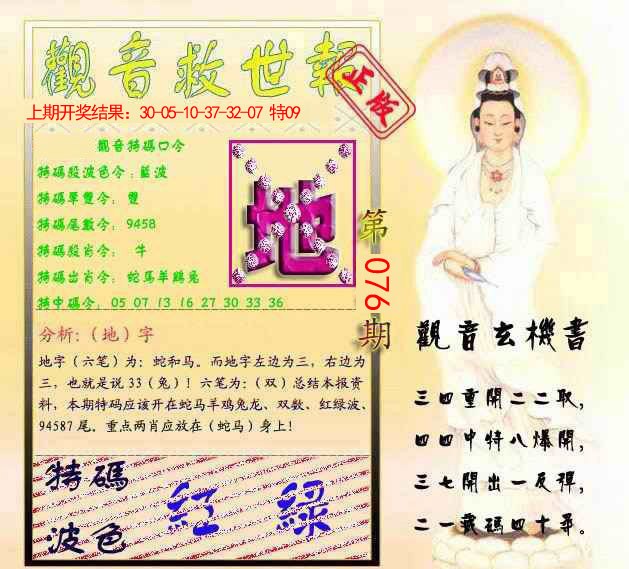 觀音救世報
正版
上期开奖结果：30-05-10-37-32-07 特09
觀音特碼口令
特碼殺波色令：藍波
特碼單雙令： 雙
特碼尾數令： 9458
特碼殺肖令： 牛
特碼出肖令： 蛇馬羊鷄兔
特中碼令： 05 07 13 16 27 30 33 36
地
第
076
期
分析：（地）字
地字（六笔）为：蛇和马。而地字左边为三，右边为
三，也就是说 33（兔）！六笔为：（双）总结本报资
料，本期特码应该开在蛇马羊鸡兔龙、双数、红绿波、
94587 尾。重点两肖应放在（蛇马）身上！
特碼
波色
紅 綠
觀音玄機書
三四重開二二取，
四四中特八爆開，
三七開出一反彈，
二一載碼四十尋。